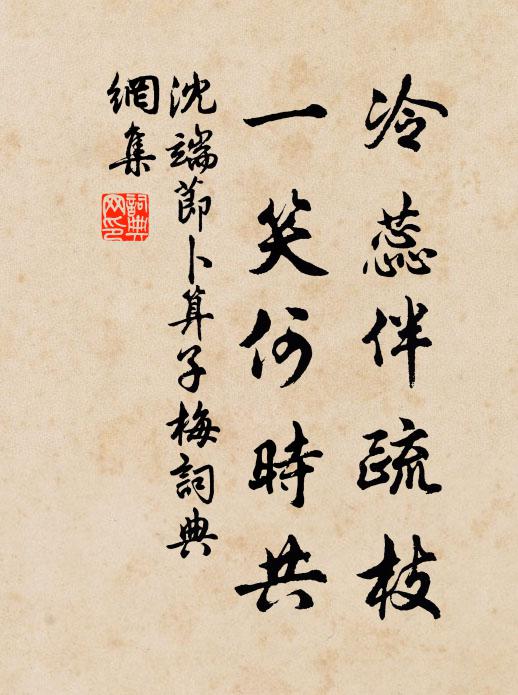 冷蕊伴疏枝
一笑何時共
沈端節卜算子梅詞典
網集
詞典
网印